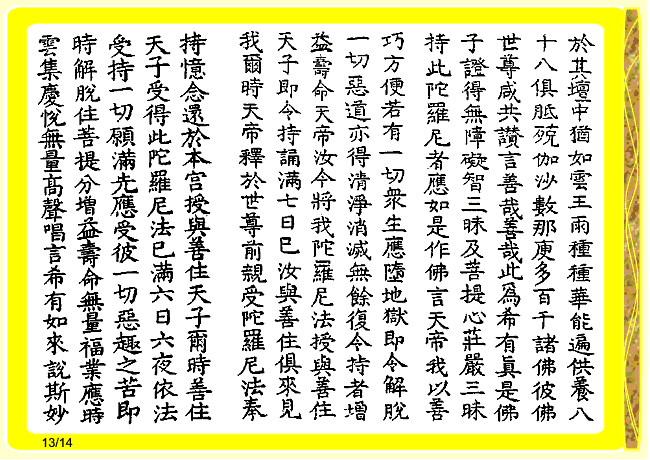 於其壇中猶如雲王雨種種華能遍供養八
十八俱胝殑伽沙數那庾多百千諸佛彼佛
世尊咸共讚言善哉善哉此為希有真是佛
子證得無障礙智三昧及菩提心莊嚴三昧
持此陀羅尼者應如是作佛言天帝我以善
巧方便若有一切眾生應墮地獄即令解脫
一切惡道亦得清淨消滅無餘復令持者增
益壽命天帝汝今將我陀羅尼法授與善住
天子即令持誦滿七日已汝與善住俱來見
我爾時天帝釋於世尊前親受陀羅尼法奉
持憶念還於本宮授與善住天子爾時善住
天子受得此陀羅尼法已滿六日六夜依法
受持一切願滿先應受彼一切惡趣之苦即
時解脫住菩提分增益壽命無量福業應時
雲集慶悅無量高聲唱言希有如來說斯妙
13/14